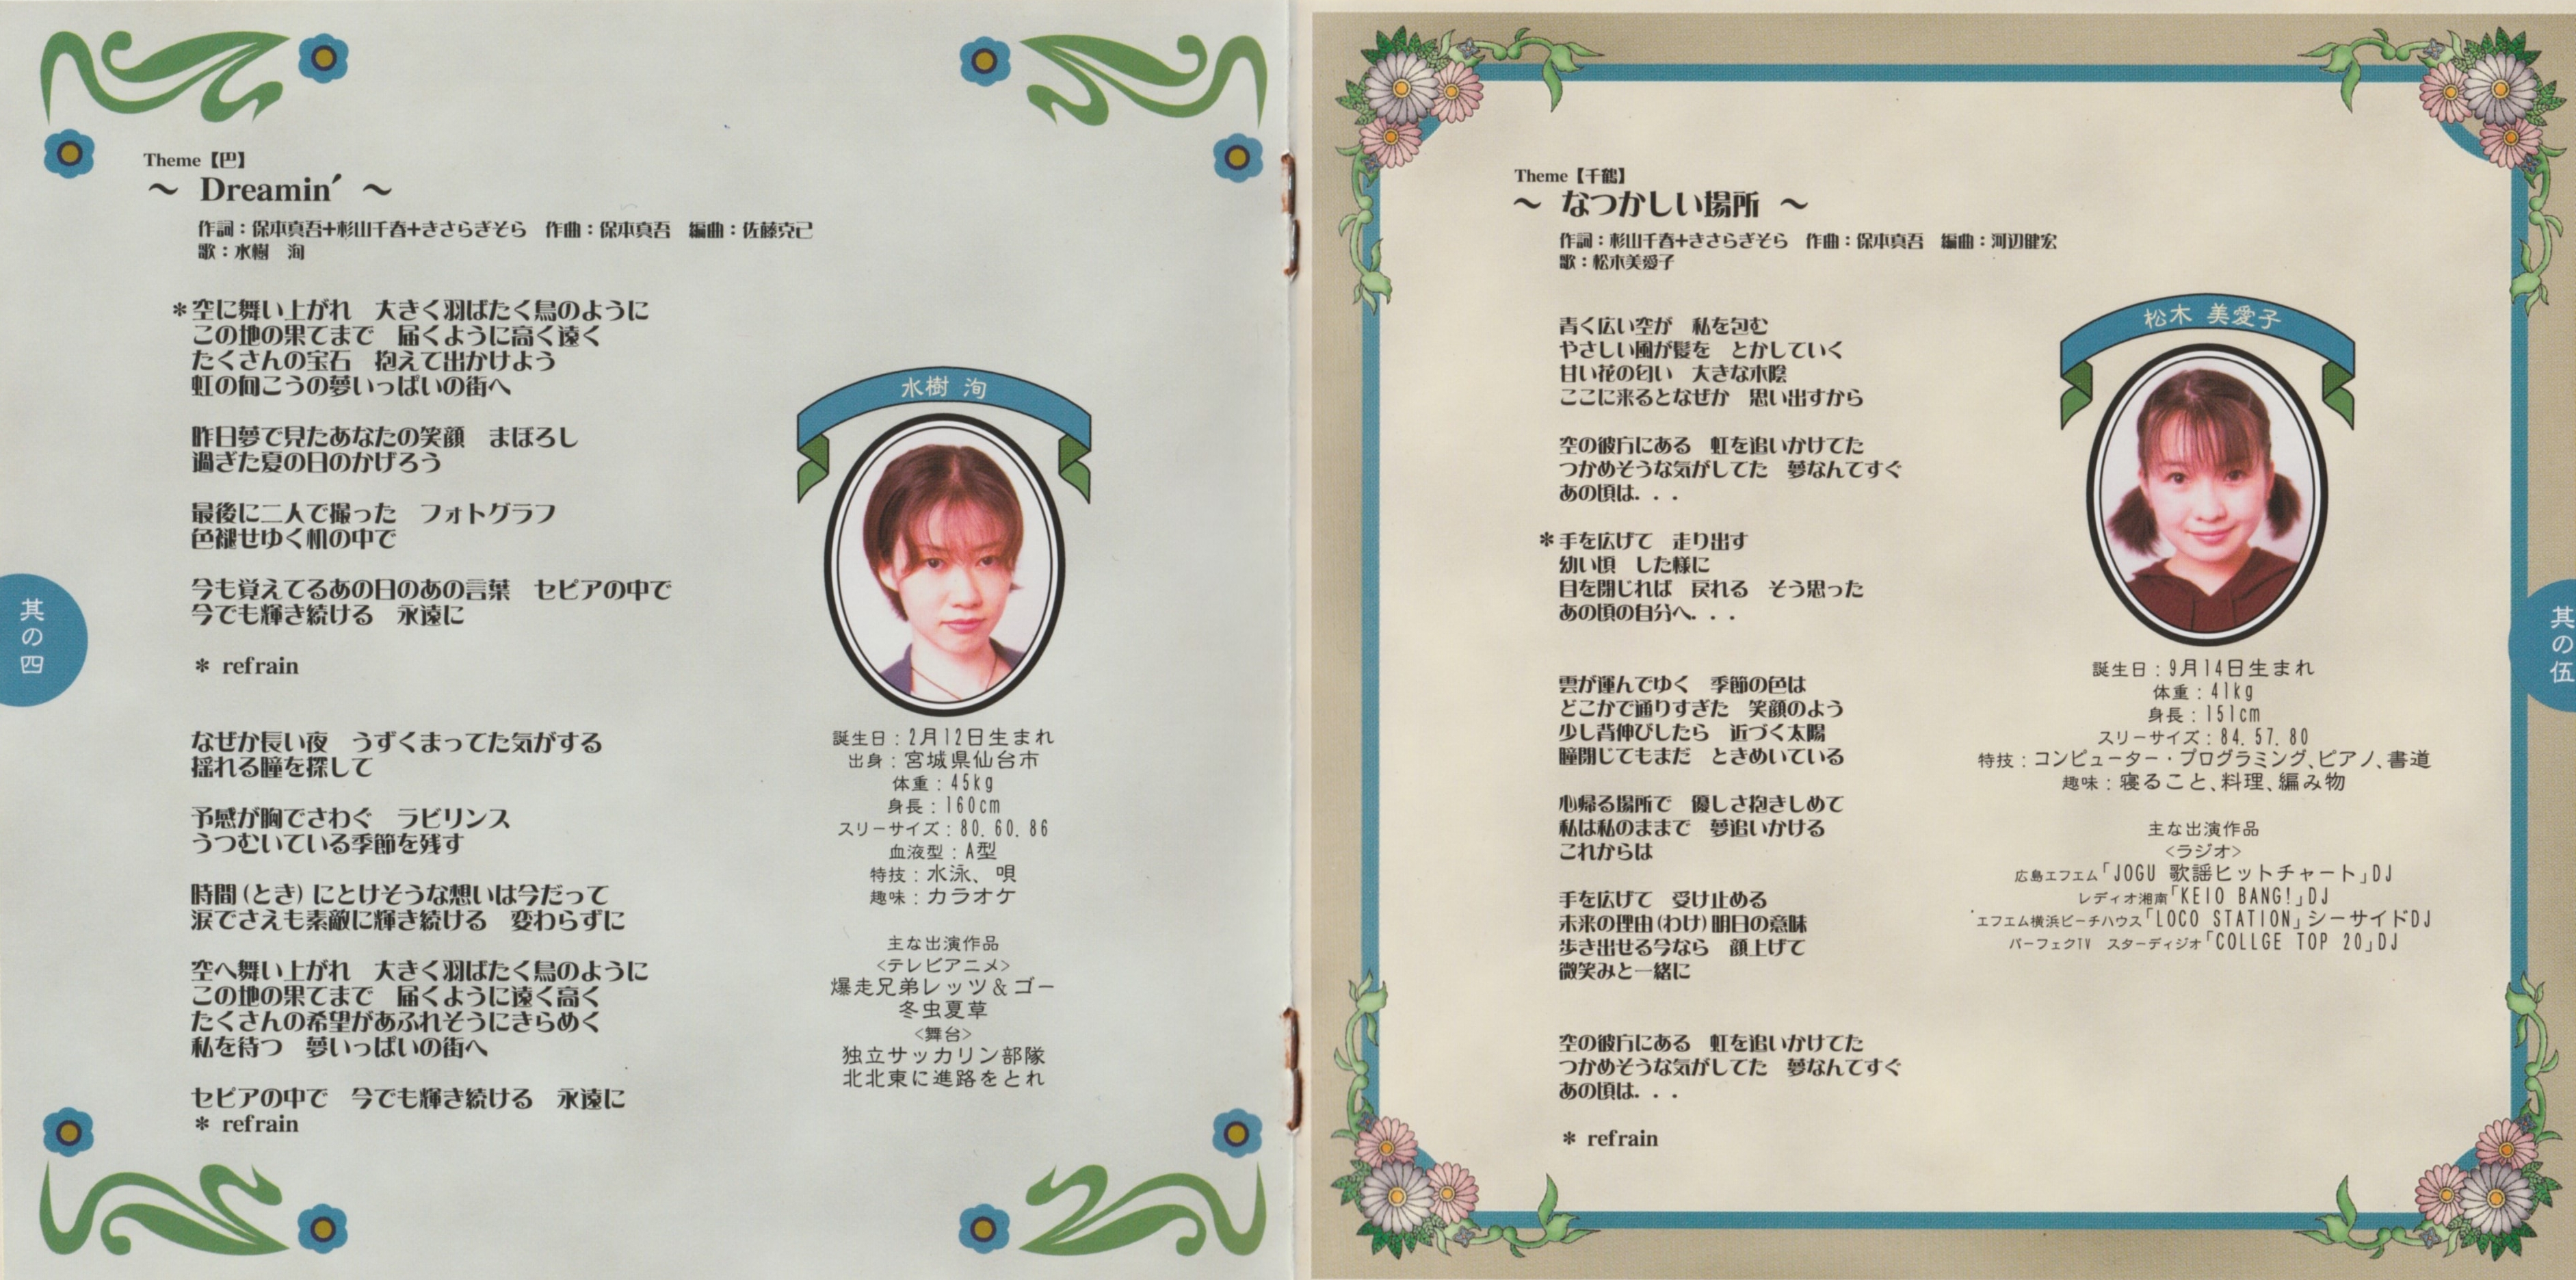 Theme【巴】
～ Dreamin' ～
作詞：保本真吾+杉山千春+きさらぎそら 作曲：保本真吾 編曲：佐藤克己
歌：水樹 洵
＊空に舞い上がれ 大きく羽ばたく鳥のように
この地の果てまで 届くように高く遠く
たくさんの宝石 抱えて出かけよう
虹の向こうの夢いっぱいの街へ
昨日夢で見たあなたの笑顔 まぼろし
過ぎた夏の日のかげろう
最後に二人で撮った フォトグラフ
色褪せゆく机の中で
今も覚えてるあの日のあの言葉 セピアの中で
今でも輝き続ける 永遠に
＊ refrain
なぜか長い夜 うずくまってた気がする
揺れる瞳を探して
予感が胸でさわぐ ラビリンス
うつむいている季節を残す
時間(とき)にとけそうな想いは今だって
涙でさえも素敵に輝き続ける 変わらずに
空へ舞い上がれ 大きく羽ばたく鳥のように
この地の果てまで 届くように遠く高く
たくさんの希望があふれそうにきらめく
私を待つ 夢いっぱいの街へ
セピアの中で 今でも輝き続ける 永遠に
＊ refrain
其の四
水樹 洵
誕生日：2月12日生まれ
出身：宮城県仙台市
体重：45kg
身長：160cm
スリーサイズ：80. 60. 86
血液型：A型
特技：水泳、唄
趣味：カラオケ
主な出演作品
<テレビアニメ>
爆走兄弟レッツ＆ゴー
冬虫夏草
<舞台>
独立サッカリン部隊
北北東に進路をとれ
Theme【千鶴】
～ なつかしい場所 ～
作詞：杉山千春+きさらぎそら 作曲：保本真吾 編曲：河辺健宏
歌：松木美愛子
青く広い空が 私を包む
やさしい風が髪を とかしていく
甘い花の匂い 大きな木陰
ここに来るとなぜか 思い出すから
空の彼方にある 虹を追いかけてた
つかめそうな気がしてた 夢なんてすぐ
あの頃は．．．
＊手を広げて 走り出す
幼い頃 した様に
目を閉じれば 戻れる そう思った
あの頃の自分へ．．．
雲が運んでゆく 季節の色は
どこかで通りすぎた 笑顔のよう
少し背伸びしたら 近づく太陽
瞳閉じてもまだ ときめいている
心帰る場所で 優しさ抱きしめて
私は私のままで 夢追いかける
これからは
手を広げて 受け止める
未来の理由(わけ)明日の意味
歩き出せる今なら 顔上げて
微笑みと一緒に
空の彼方にある 虹を追いかけてた
つかめそうな気がしてた 夢なんてすぐ
あの頃は．．．
＊ refrain
松木 美愛子
誕生日：9月14日生まれ
体重：41kg
身長：151cm
スリーサイズ：84. 57. 80
特技：コンピューター・プログラミング、ピアノ、書道
趣味：寝ること、料理、編み物
主な出演作品
<ラジオ>
広島エフエム「JOGU 歌謡ヒットチャート」DJ
レディオ湘南「KEIO BANG!」DJ
エフエム横浜ビーチハウス「LOCO STATION」シーサイドDJ
パーフェクTV スターディジオ「COLLGE TOP 20」DJ
其の伍